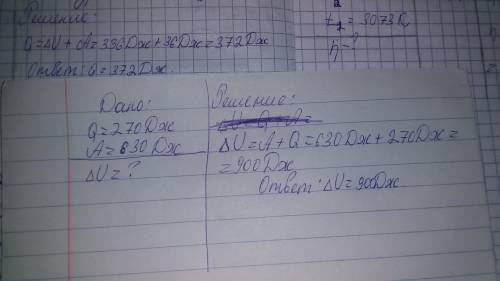 Решение:
Q=ΔU+A=336Дж+36Дж=372Дж
Ответ: Q=372Дж.
t₂=3073К
h-?
Дано:
Q=270Дж
A=630Дж
ΔU=?
Решение:
ΔU=Q+A=
ΔU=A+Q=630Дж+270Дж=
=900Дж
Ответ: ΔU=900Дж